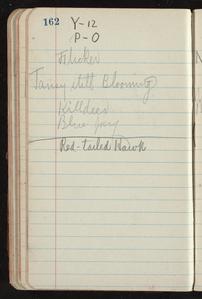 162 Y-12
P-O
Flicker
Tansy still Blooming
Killdeer
Blue jay
Red-tailed Hawk